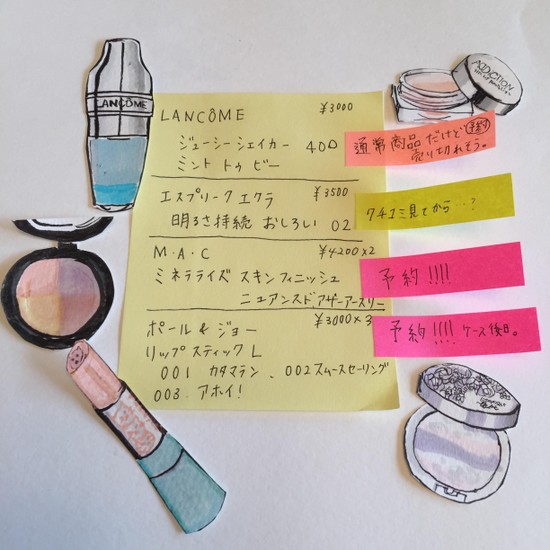 LANCÔME ¥3000
ジューシーシェイカー 400
ミント トゥ ビー
通常商品だけど
売り切れそう。
エスプリーク エクラ ¥3500
明るさ持続 おしろい 02
クチコミ見てから…?
M・A・C ¥4200×2
ミネラライズ スキンフィニッシュ
ニュアンスド アザーアースリー
予約!!!!
ポール & ジョー ¥3000×3
リップスティック L
001 カタマラン、002 スムースセーリング
003 アホイ!
予約!!!! ケース後日。
LANCÔME
ADDICTION